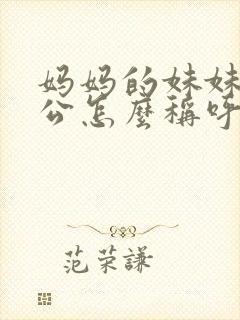 妈妈的妹妹
公怎麼稱呼
范荣謙